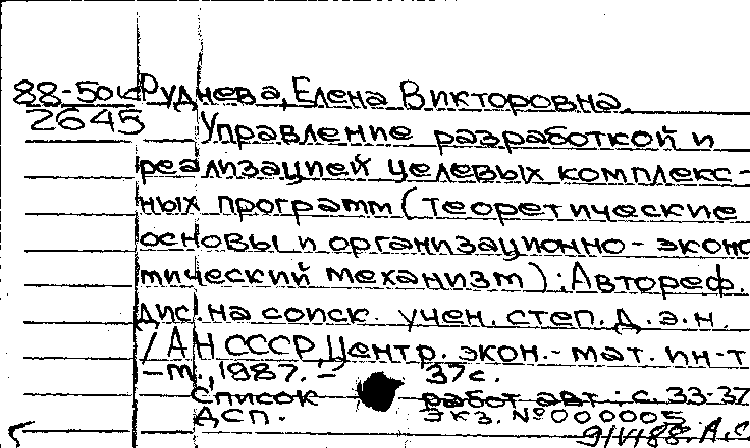 88-50к Руднева, Елена Викторовна.
2645 Управление разработкой и
реализацией целевых комплекс-
ных программ (теоретические
основы и организационно-эконо
мический механизм): Автореф.
дис. на соиск. учен. степ. д.э.н.
/АН СССР, Центр. экон.-мат. ин-т
-м., 1987. - 37с.
Список работ авт.: с. 33-37
ДСП. экз. №000005